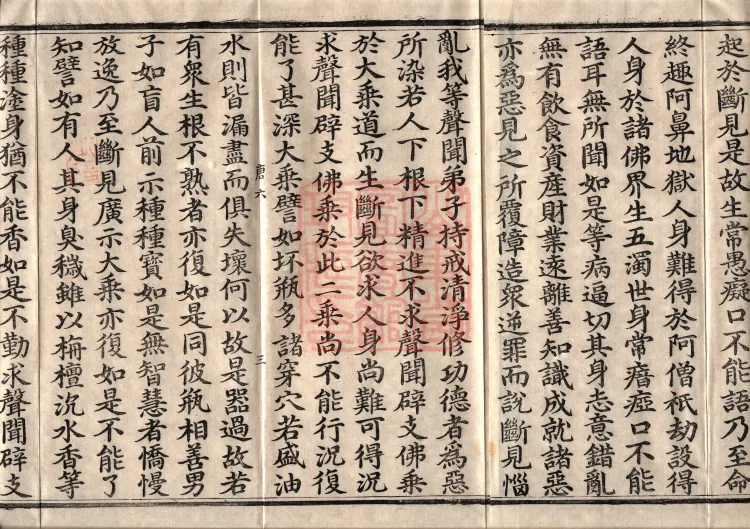 起於斷見是故生常愚癡口不能語乃至命
終趣阿鼻地獄人身難得於阿僧祇劫設得
人身於諸佛界生五濁世身常瘖瘂口不能
語耳無所聞如是等病逼切其身志意錯亂
無有飲食資產財業遠離善知識成就諸惡
亦為惡見之所覆障造衆逆罪而說斷見惱
亂我等聲聞弟子持戒清淨修功德者為惡
所染若人下根下精進不求聲聞辟支佛乘
於大乘道而生斷見欲求人身尚難可得況
求聲聞辟支佛乘於此二乘尚不能行況復
能了甚深大乘譬如坏瓶多諸穿穴若盛油
唐六 三
水則皆漏盡而俱失壞何以故是器過故若
有衆生根不熟者亦復如是同彼瓶相善男
子如盲人前示種種寶如是無智慧者憍慢
放逸乃至斷見廣示大乘亦復如是不能了
知譬如有人其身臭穢雖以栴檀沉水香等
種種塗身猶不能香如是不勤求聲聞辟支